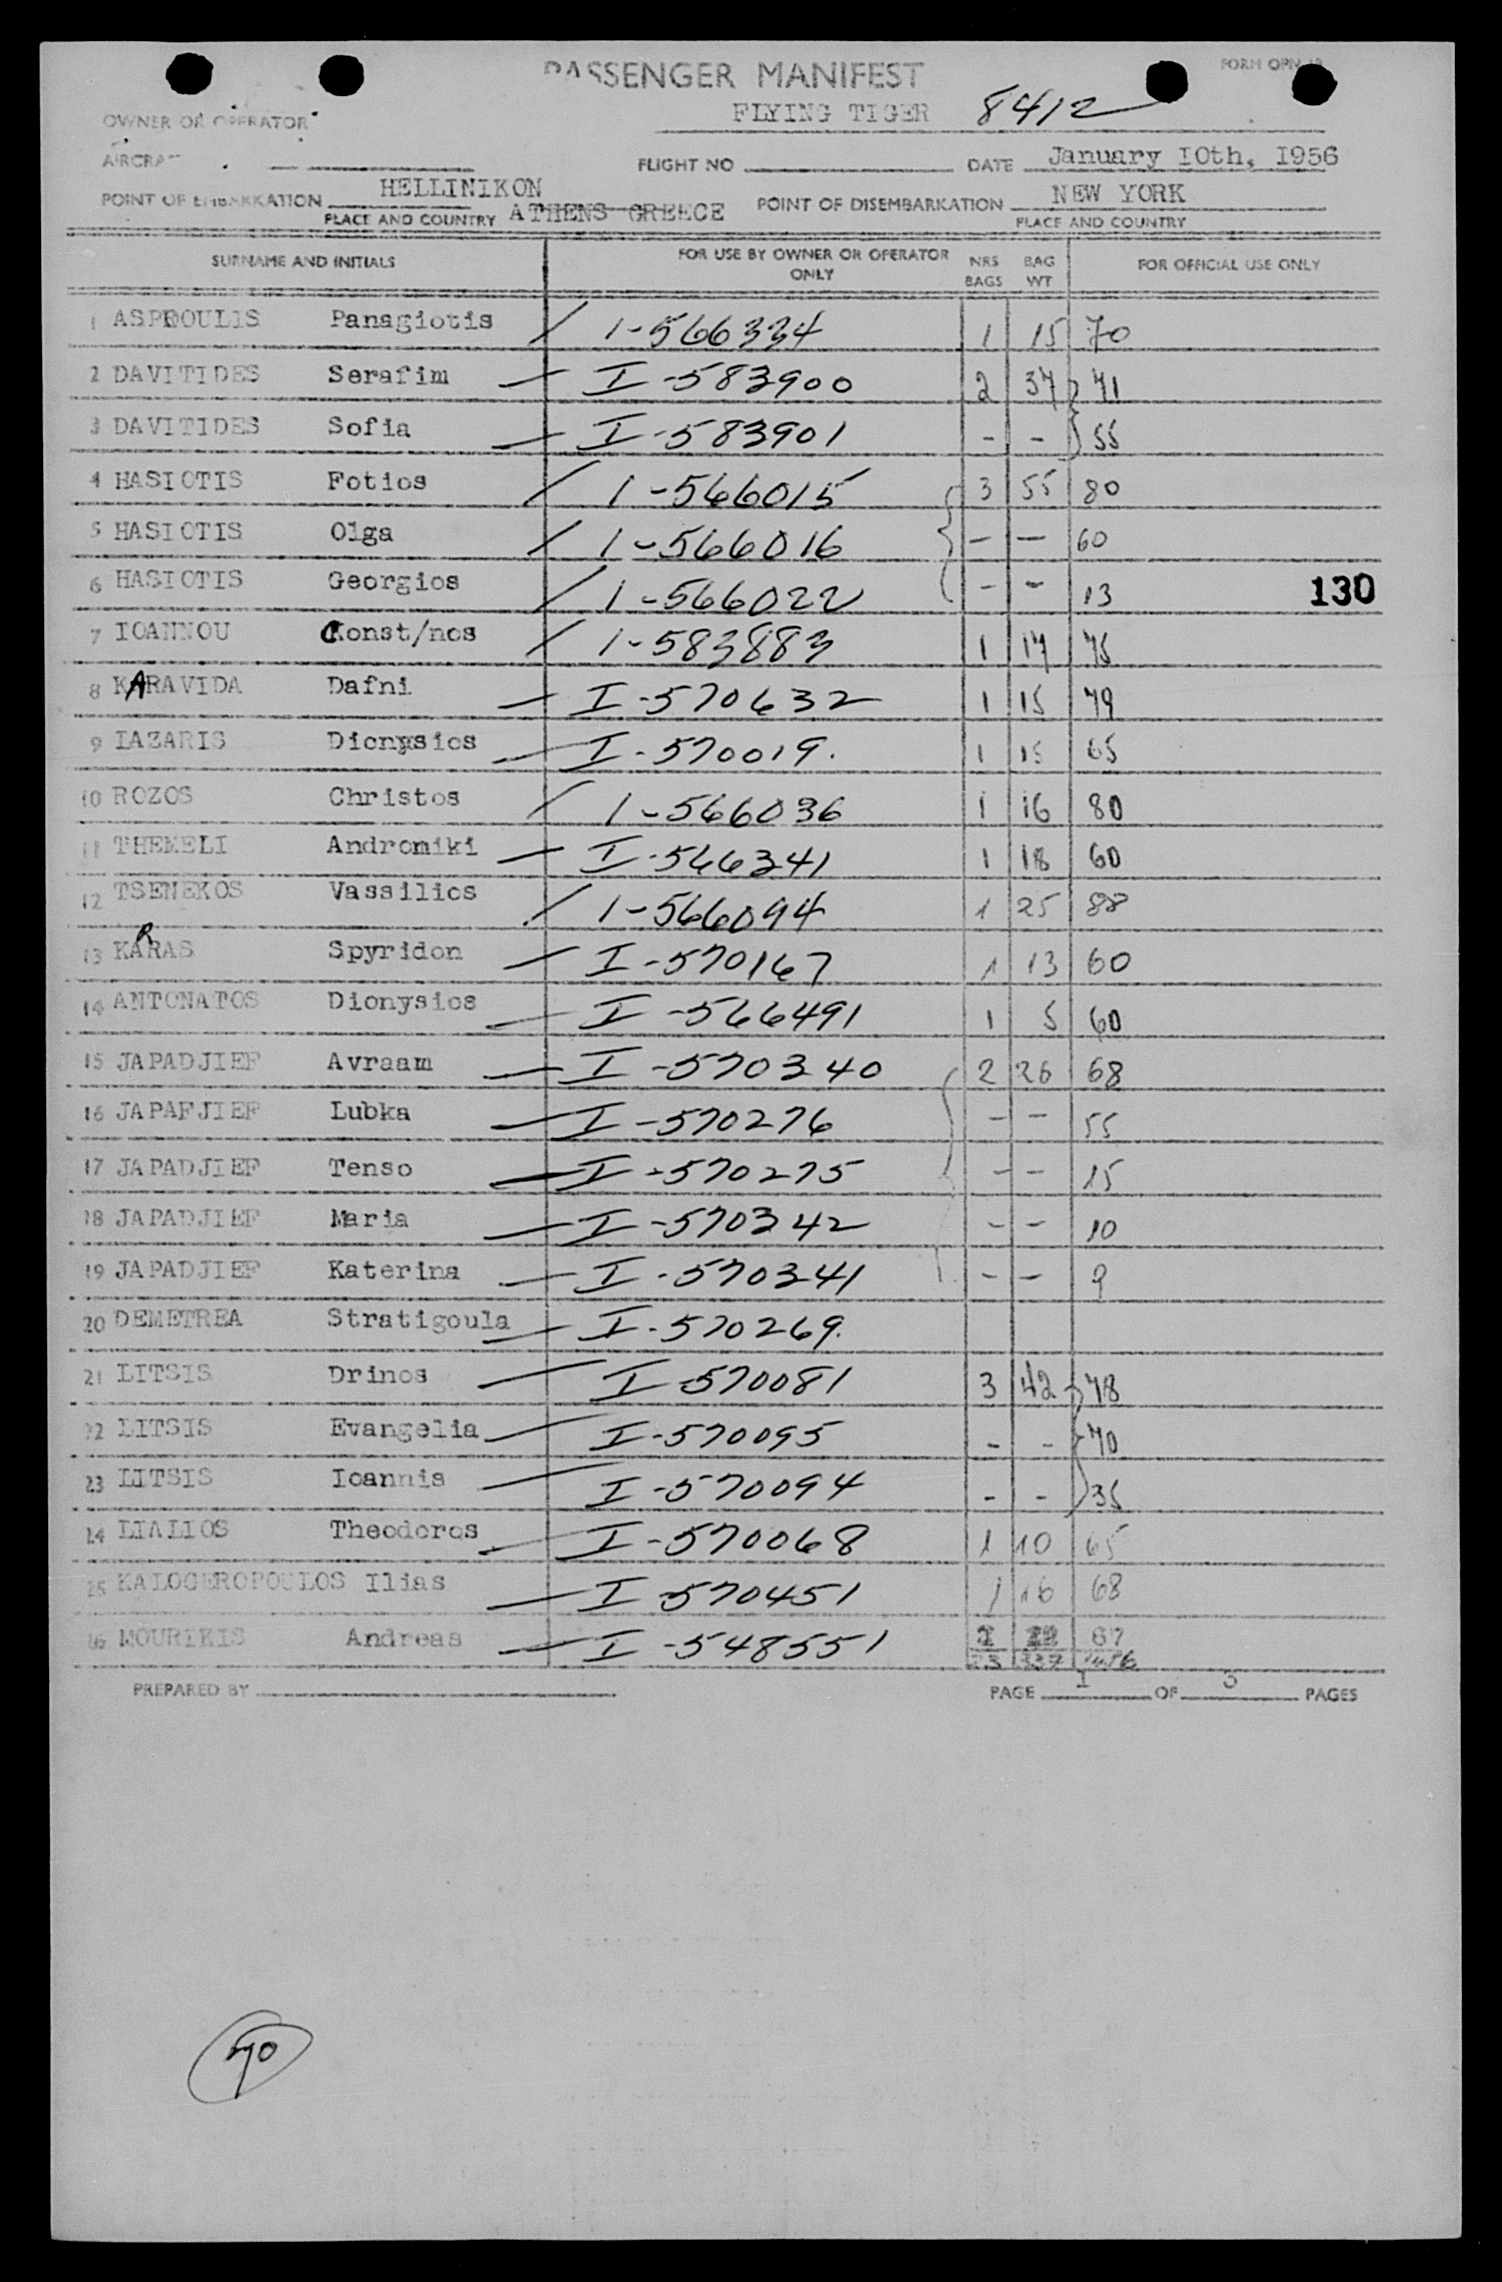 PASSENGER MANIFEST
FORM OPN
FLYING TIGER 8412
OWNER OR OPERATOR
AIRCRAFT FLIGHT NO DATE January 10th, 1956
POINT OF EMBARKATION HELLINIKON ATHENS GREECE POINT OF DISEMBARKATION NEW YORK
PLACE AND COUNTRY PLACE AND COUNTRY
SURNAME AND INITIALS FOR USE BY OWNER OR OPERATOR ONLY NRS BAGS BAG WT FOR OFFICIAL USE ONLY
1 ASPROULIS Panagiotis / 1-566334 1 15 70
2 DAVITIDES Serafim — I-583900 2 37 71
3 DAVITIDES Sofia — I-583901 - - 55
4 HASIOTIS Fotios / 1-566015 3 55 80
5 HASIOTIS Olga / 1-566016 — — 60
6 HASIOTIS Georgios / 1-566022 - - 13 130
7 IOANNOU Konst/nos / 1-583883 1 17 75
8 KARAVIDA Dafni — I-570632 1 15 79
9 LAZARIS Dionysios — I-570019. 1 15 65
10 ROZOS Christos / 1-566036 1 16 80
11 THEMELI Andromiki — I-566341 1 18 60
12 TSENEKOS Vassilios / 1-566094 1 25 88
13 KARRAS Spyridon — I-570167 1 13 60
14 ANTONATOS Dionysios — I-566491 1 5 60
15 JAPADJIEF Avraam — I-570340 2 26 68
16 JAPAFJIEF Lubka — I-570276 - - 55
17 JAPADJIEF Tenso — I-570275 - - 15
18 JAPADJIEF Maria — I-570342 - - 10
19 JAPADJIEF Katerina — I-570341 - - 9
20 DEMETREA Stratigoula — I-570269.
21 LITSIS Drinos — I-570081 3 42 78
22 LITSIS Evangelia — I-570095 - - 70
23 LITSIS Ioannis — I-570094 - - 35
24 LIALIOS Theodoros — I-570068 1 10 65
25 KALOGEROPOULOS Ilias — I-570451 1 16 68
26 MOURIKIS Andreas — I-548551 1 67
23 337
PREPARED BY PAGE I OF 3 PAGES
70